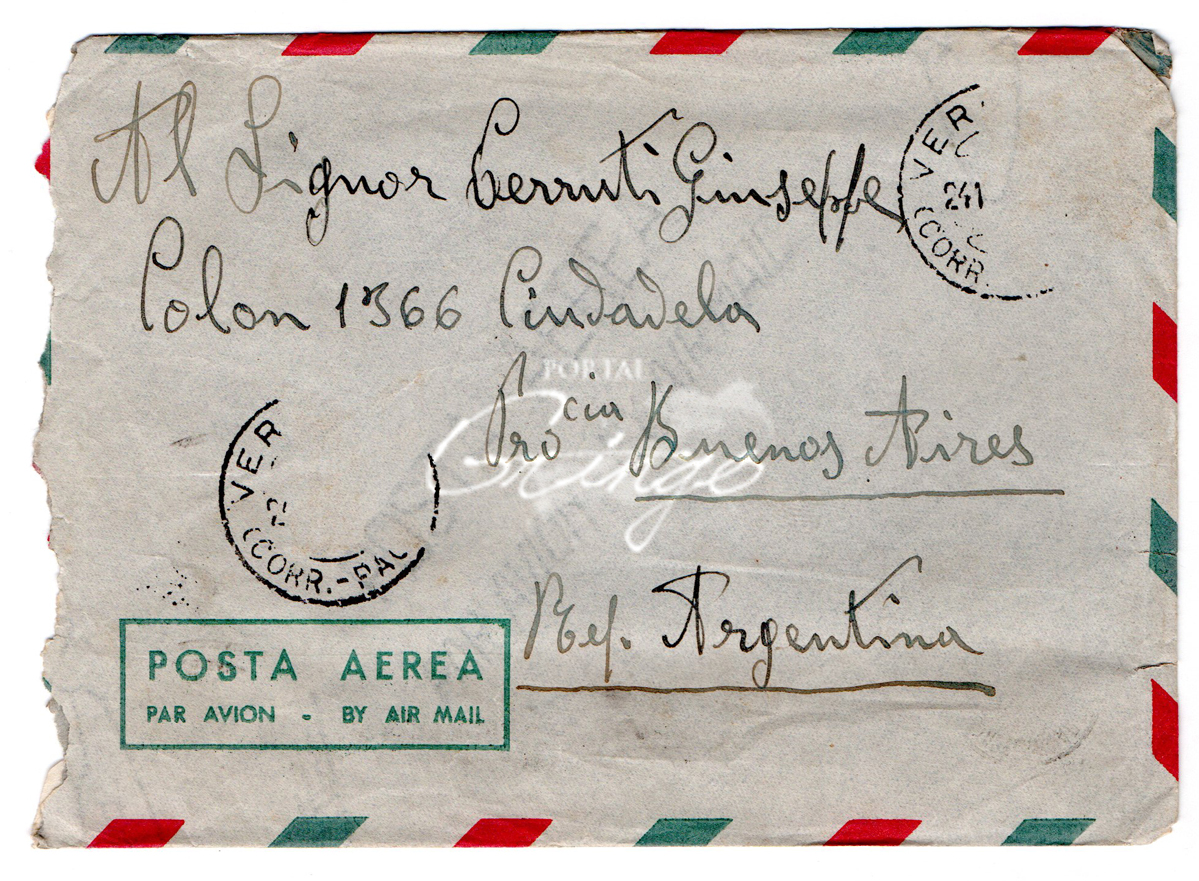 Al Signor Cerruti Giuseppe
Colon 1366 Ciudadela
Pro cia Buenos Aires
Rep. Argentina
VER.
241
(CORR.
VER
(CORR.-PAC
POSTA AEREA
PAR AVION - BY AIR MAIL
PORTAL
Gringo